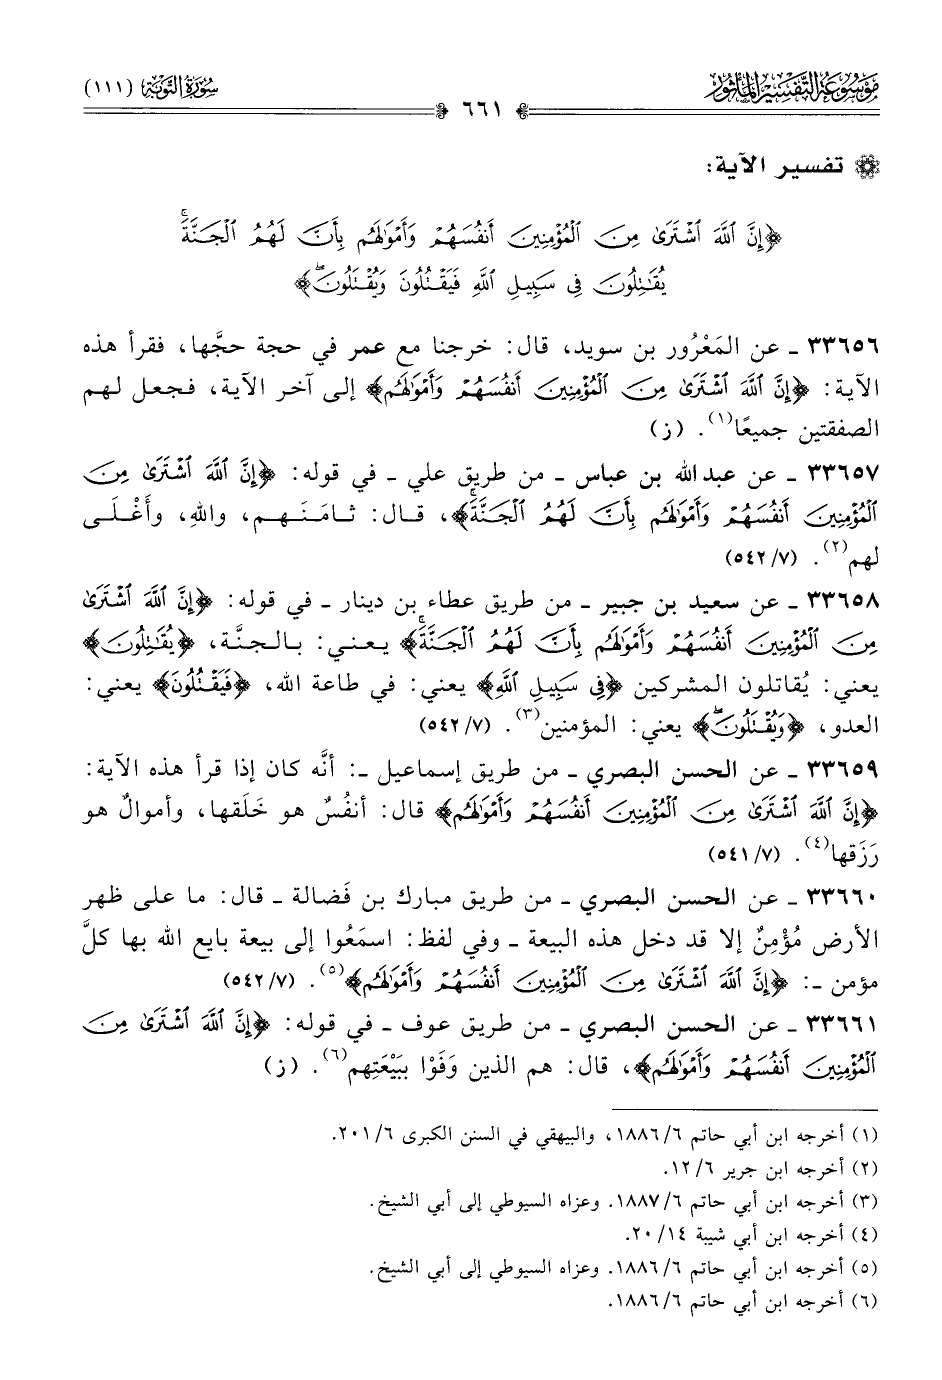 مَوْسُوعَة التَّفْسِير المَأْثُور
سُورَةُ التَّوْبَة (١١١)
٦٦١
تفسير الآية:
﴿إِنَّ ٱللَّهَ ٱشْتَرَىٰ مِنَ ٱلْمُؤْمِنِينَ أَنفُسَهُمْ وَأَمْوَٰلَهُم بِأَنَّ لَهُمُ ٱلْجَنَّةَۚ
يُقَٰتِلُونَ فِى سَبِيلِ ٱللَّهِ فَيَقْتُلُونَ وَيُقْتَلُونَۖ﴾
٣٣٦٥٦ ـ عن المَعْرُور بن سويد، قال: خرجنا مع عمر في حجة حجَّها، فقرأ هذه
الآية: ﴿إِنَّ ٱللَّهَ ٱشْتَرَىٰ مِنَ ٱلْمُؤْمِنِينَ أَنفُسَهُمْ وَأَمْوَٰلَهُم﴾ إلى آخر الآية، فجعل لهم
الصفقتين جميعًا(١). (ز)
٣٣٦٥٧ ـ عن عبد الله بن عباس ـ من طريق علي ـ في قوله: ﴿إِنَّ ٱللَّهَ ٱشْتَرَىٰ مِنَ
ٱلْمُؤْمِنِينَ أَنفُسَهُمْ وَأَمْوَٰلَهُم بِأَنَّ لَهُمُ ٱلْجَنَّةَۚ﴾، قال: ثامَنَهم، واللهِ، وأَغْلَى
لهم(٢). (٧/ ٥٤٢)
٣٣٦٥٨ ـ عن سعيد بن جبير ـ من طريق عطاء بن دينار ـ في قوله: ﴿إِنَّ ٱللَّهَ ٱشْتَرَىٰ
مِنَ ٱلْمُؤْمِنِينَ أَنفُسَهُمْ وَأَمْوَٰلَهُم بِأَنَّ لَهُمُ ٱلْجَنَّةَۚ﴾ يعني: بالجنَّة، ﴿يُقَٰتِلُونَ﴾
يعني: يُقاتلون المشركين ﴿فِى سَبِيلِ ٱللَّهِ﴾ يعني: في طاعة الله، ﴿فَيَقْتُلُونَ﴾ يعني:
العدو، ﴿وَيُقْتَلُونَۖ﴾ يعني: المؤمنين(٣). (٧/ ٥٤٢)
٣٣٦٥٩ ـ عن الحسن البصري ـ من طريق إسماعيل ـ: أنَّه كان إذا قرأ هذه الآية:
﴿إِنَّ ٱللَّهَ ٱشْتَرَىٰ مِنَ ٱلْمُؤْمِنِينَ أَنفُسَهُمْ وَأَمْوَٰلَهُم﴾ قال: أنفُسٌ هو خَلَقها، وأموالٌ هو
رَزَقها(٤). (٧/ ٥٤١)
٣٣٦٦٠ ـ عن الحسن البصري ـ من طريق مبارك بن فَضالة ـ قال: ما على ظهر
الأرض مُؤْمِنٌ إلا قد دخل هذه البيعة ـ وفي لفظ: اسمَعُوا إلى بيعة بايع الله بها كلَّ
مؤمن ـ: ﴿إِنَّ ٱللَّهَ ٱشْتَرَىٰ مِنَ ٱلْمُؤْمِنِينَ أَنفُسَهُمْ وَأَمْوَٰلَهُم﴾(٥). (٧/ ٥٤٢)
٣٣٦٦١ ـ عن الحسن البصري ـ من طريق عوف ـ في قوله: ﴿إِنَّ ٱللَّهَ ٱشْتَرَىٰ مِنَ
ٱلْمُؤْمِنِينَ أَنفُسَهُمْ وَأَمْوَٰلَهُم﴾، قال: هم الذين وَفَوْا ببَيْعَتِهم(٦). (ز)
(١) أخرجه ابن أبي حاتم ٦/ ١٨٨٦، والبيهقي في السنن الكبرى ٦/ ٢٠١.
(٢) أخرجه ابن جرير ٦/ ١٢.
(٣) أخرجه ابن أبي حاتم ٦/ ١٨٨٧. وعزاه السيوطي إلى أبي الشيخ.
(٤) أخرجه ابن أبي شيبة ١٤/ ٢٠.
(٥) أخرجه ابن أبي حاتم ٦/ ١٨٨٦. وعزاه السيوطي إلى أبي الشيخ.
(٦) أخرجه ابن أبي حاتم ٦/ ١٨٨٦.